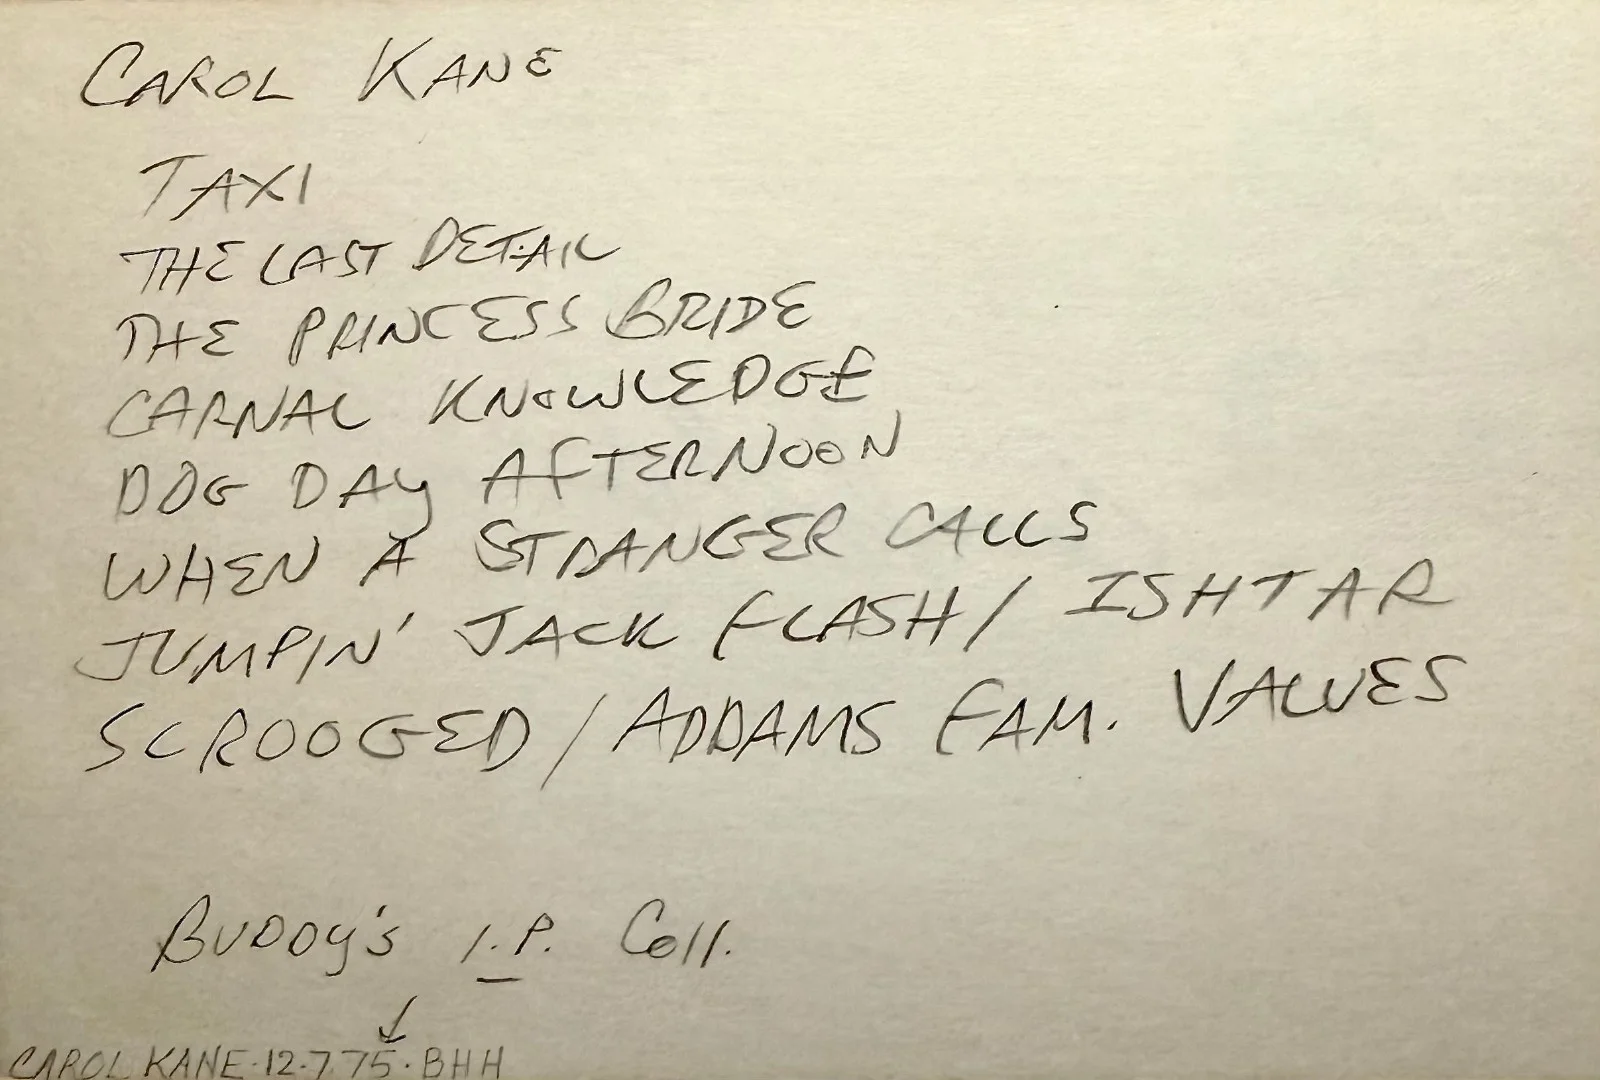 CAROL KANE
TAXI
THE LAST DETAIL
THE PRINCESS BRIDE
CARNAL KNOWLEDGE
DOG DAY AFTERNOON
WHEN A STRANGER CALLS
JUMPIN' JACK FLASH / ISHTAR
SCROOGED / ADDAMS FAM. VALUES
BUDDY'S I.P. Coll.
CAROL KANE·12·7 75·BHH